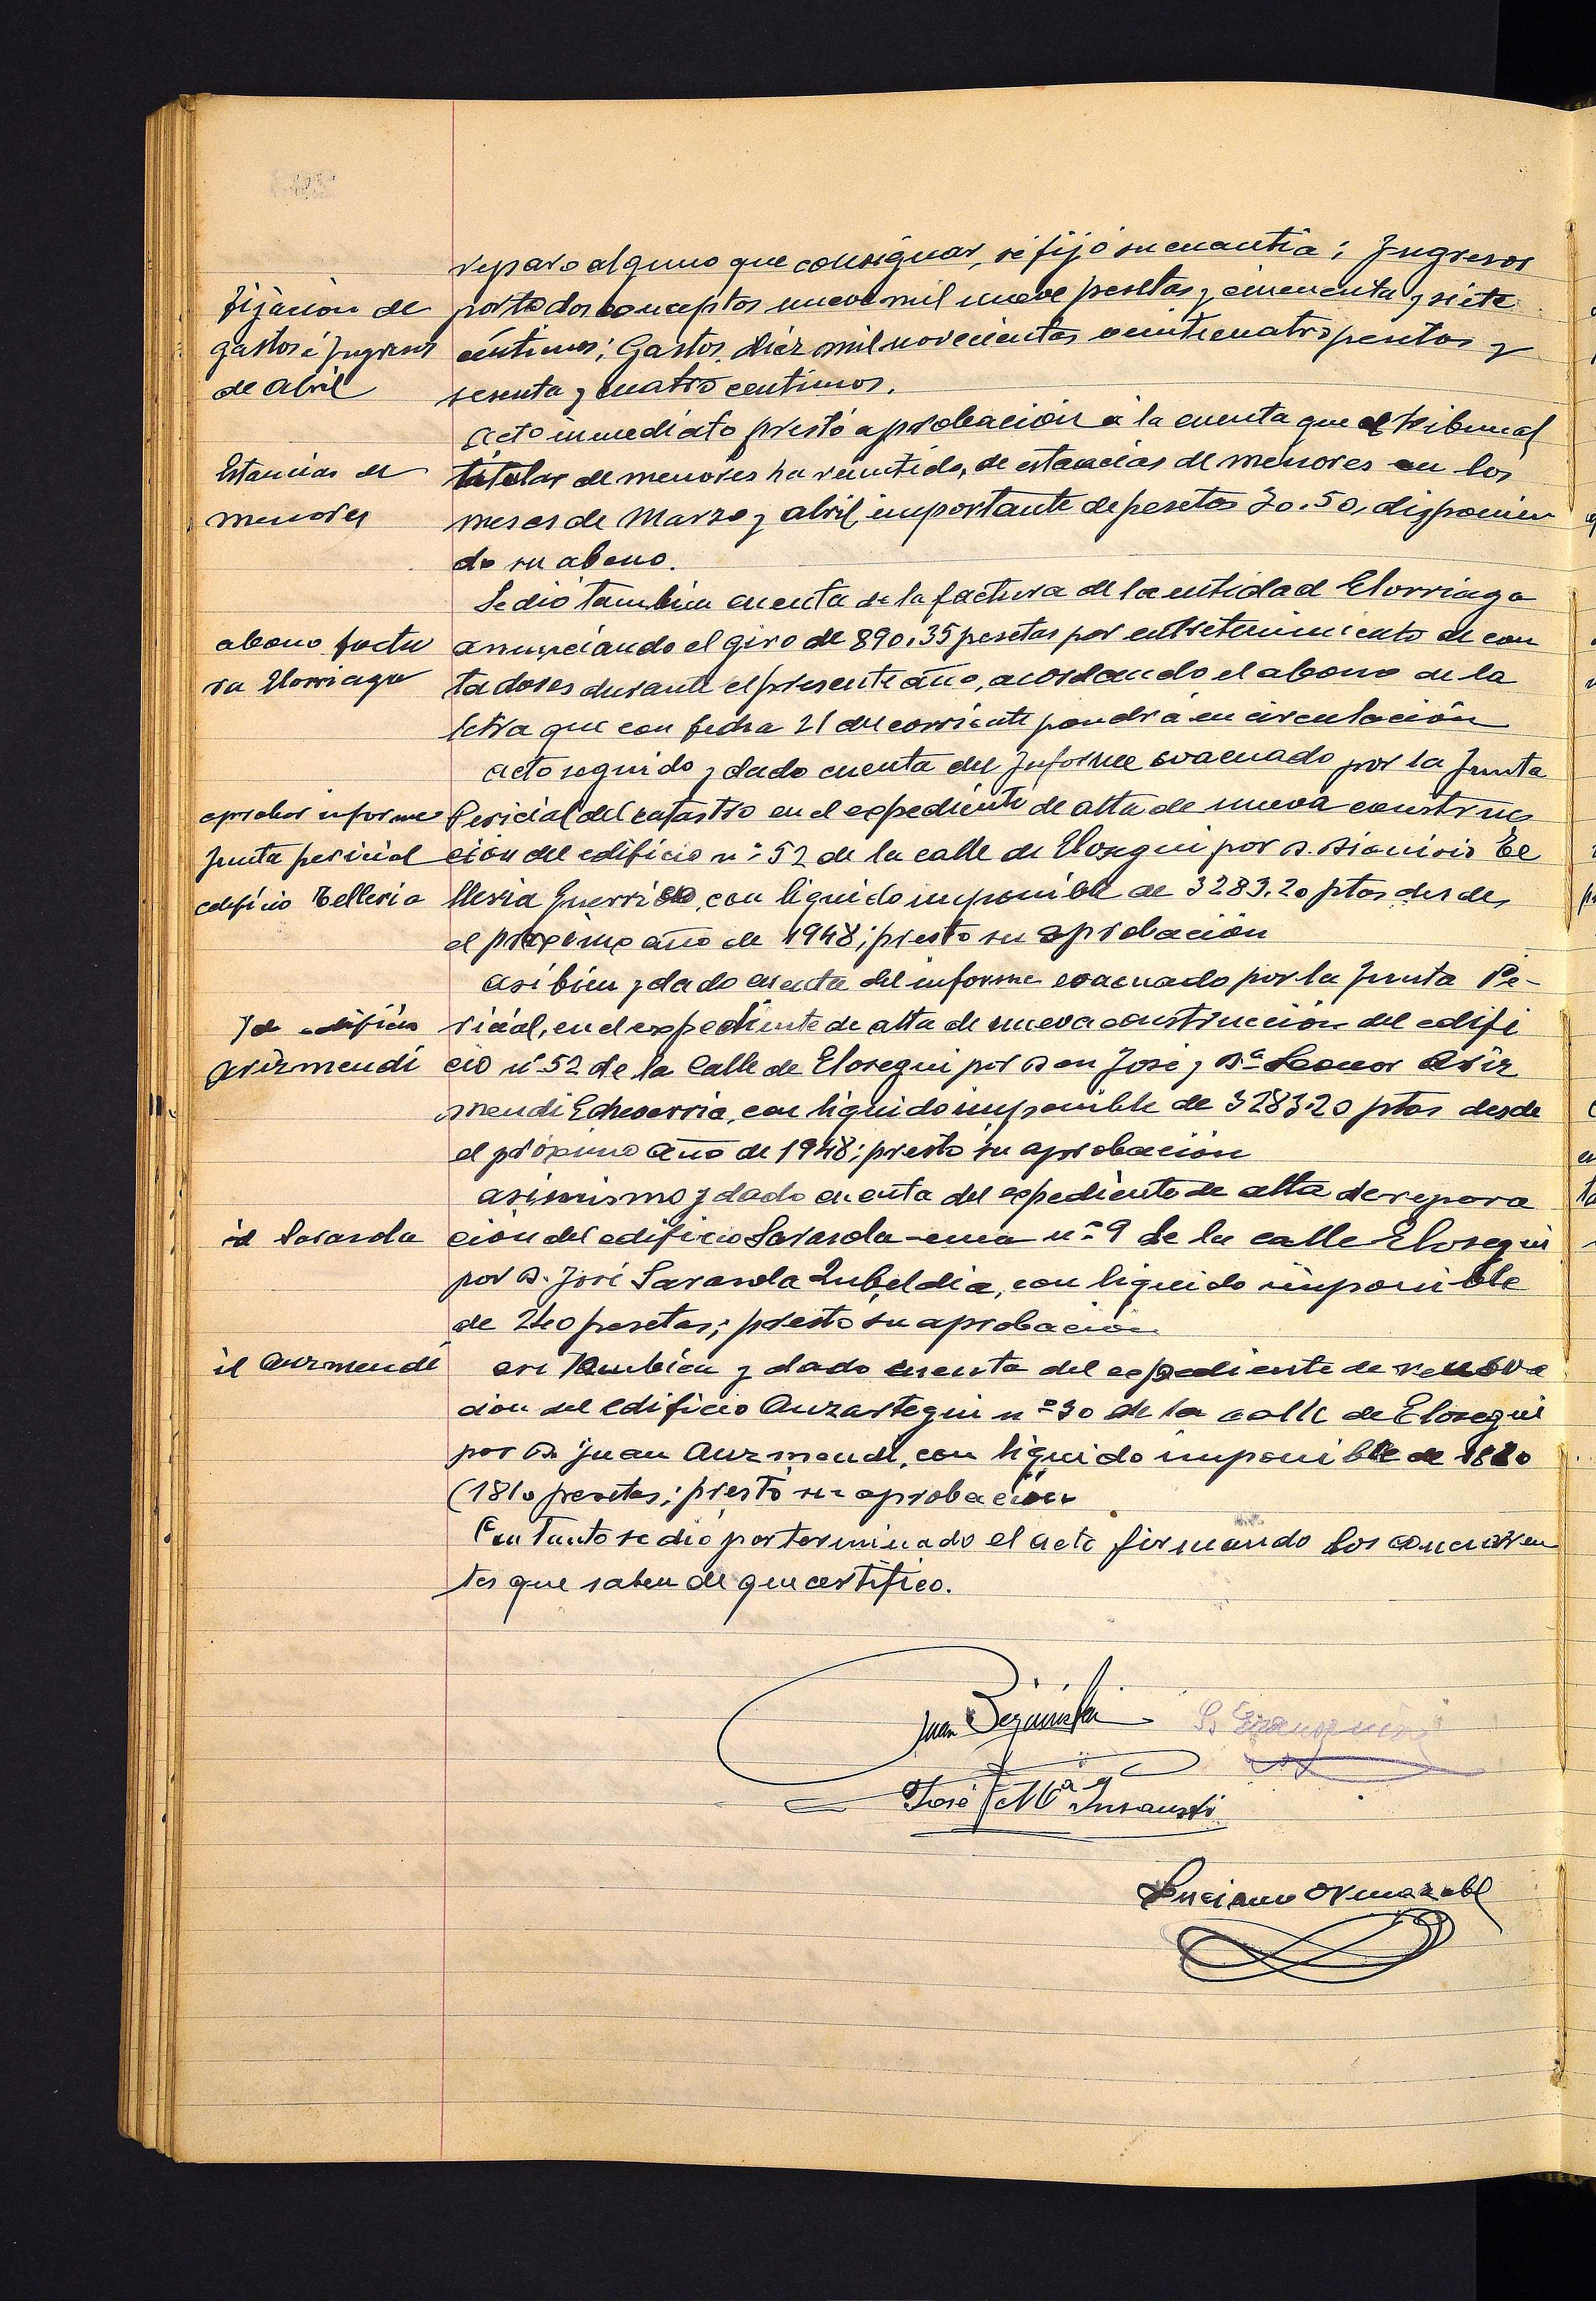 reparo alguno que consignar, se fijó su cuantia; Ingresos
fijacion de
por todos conceptos nueve mil nueve pesetas y cincuenta y siete
gastos é Ingresos
céntimos; Gastos, diez mil novecientas veinticuatro pesetas y
de abril
sesenta y cuatro centimos.
Acto inmediato prestó aprobación á la cuenta que el tribunal
Estancias de
tutelar de menores ha remitido, de estancias de menores en los
menores
meses de Marzo y abril, importante de pesetas 70.50, disponien
do su abono.
Se dió tambien cuenta de la factura de la entidad Elorriaga
abono factu
anunciando el giro de 890.35 pesetas por entretenimiento de con
ra Elorriaga
tadores durante el presente año, acordando el abono de la
letra que con fecha 21 del corriente pondrá en circulación
Acto seguido y dado cuenta del Informe evacuado por la Junta
aprobar informe
Pericial del catastro en el expediente de alta de nueva construc
Junta pericial
ción del edificio nº 52 de la calle de Elosegui por D. Dionisio Te
edificio Telleria
lleria, con liquido imponible de 3283.20 ptas desde
el próximo año de 1948; prestó su aprobación
Asi bien y dado cuenta del informe evacuado por la Junta Pe-
Id edificio
ricial, en el expediente de alta de nueva construcción del edifi
Arizmendi
cio nº 52 de la Calle de Elosegui por Don José y Dª Leonor Ariz
mendi Echeverria, con liquido imponible de 3283.20 ptas desde
el próximo año de 1948; prestó su aprobación
Asimismo y dado cuenta del expediente de alta de repara
id Sarasola
ción del edificio Sarasola-enea nº 9 de la calle Elosegui
por D. José Sarasola Zubeldia, con liquido imponible
de 240 pesetas; prestó su aprobación
id Aurmendi
Asi tambien y dado cuenta del expediente de renova
ción del edificio Auzartegui nº 30 de la calle de Elosegui
por D. Juan Aurmendi, con liquido imponible de 1810
(1810 pesetas; prestó su aprobación
En tanto se dió por terminado el acto firmando los concurren
tes que saben de que certifico.
Juan
José Mª Insausti
Luciano